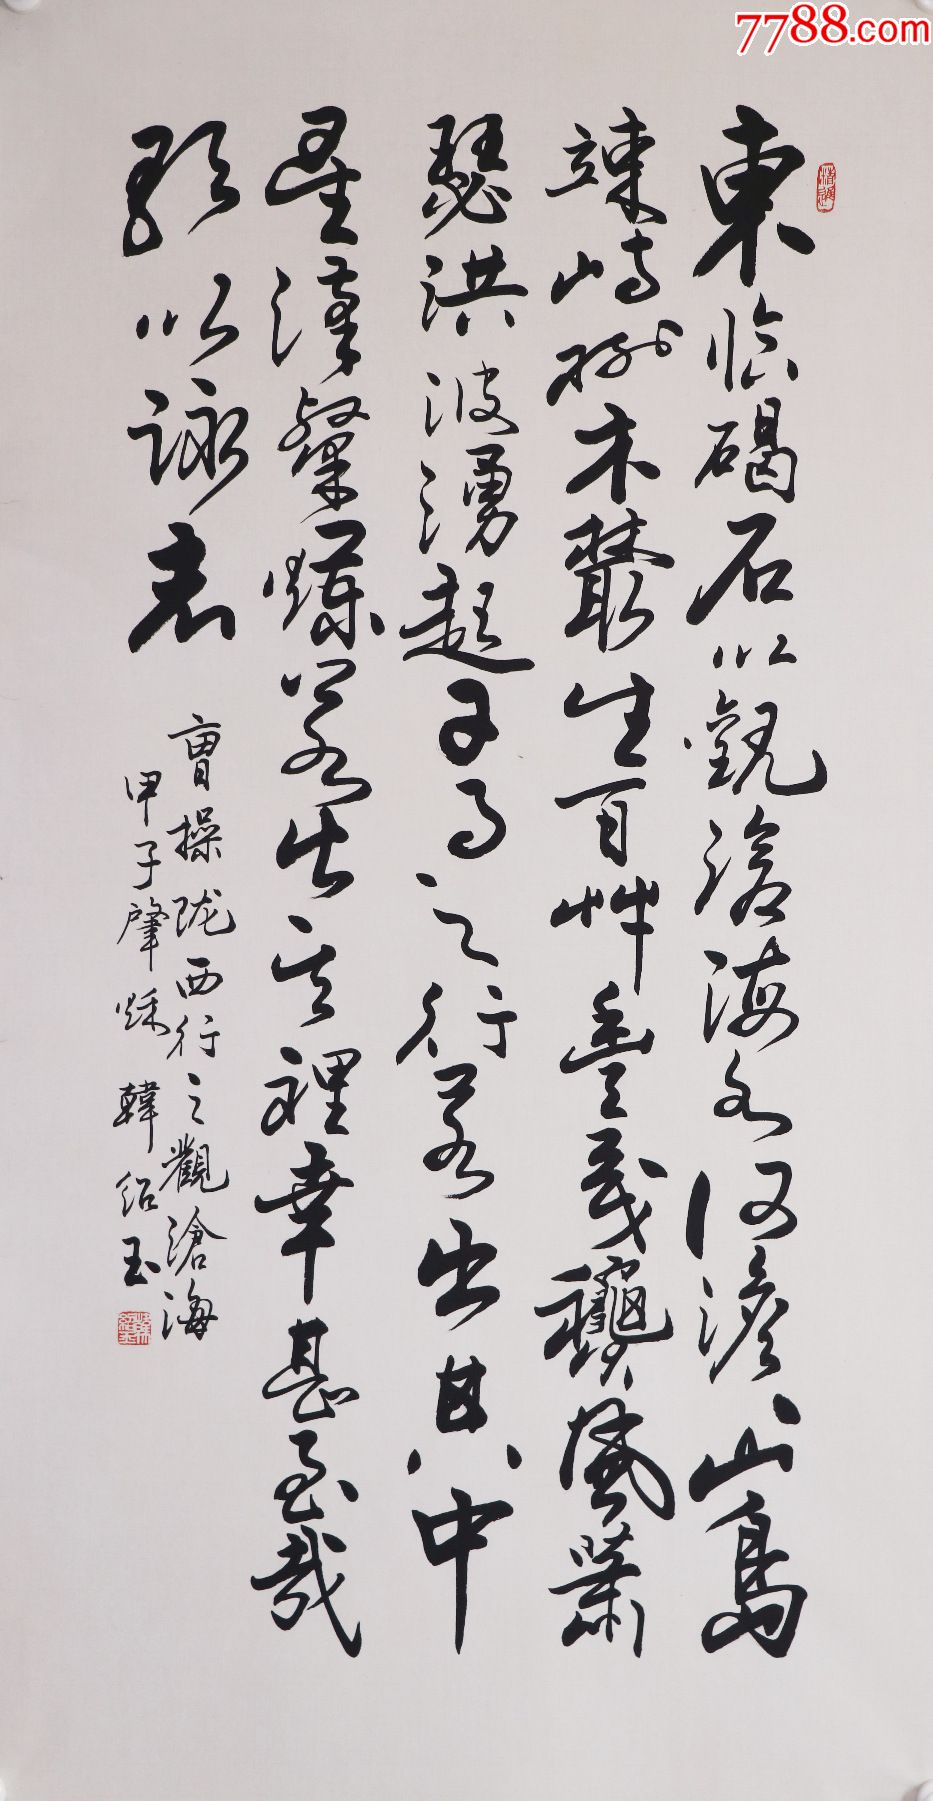 7788.com
東临碣石以觀滄海水何澹、山島
竦峙樹木叢生百艸豐茂龝風蕭
瑟洪波湧起日月之行若出其中
星漢粲爛若出其裡幸甚至哉
歌以詠志
曹操陇西行之觀滄海
甲子肇秌 韓绍玉